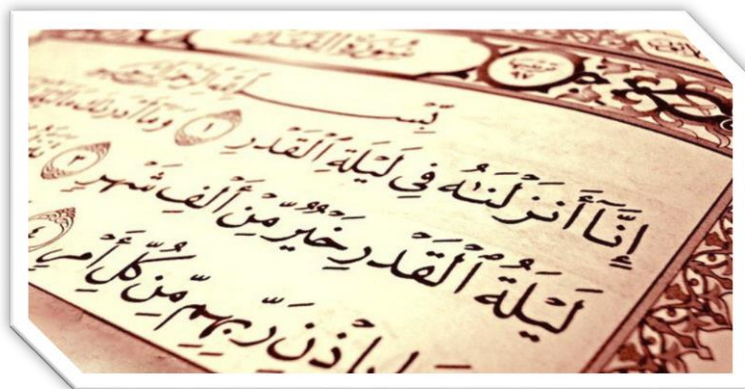 سُورَةُ الْقَدْرِ
بِسْمِ اللَّهِ الرَّحْمَٰنِ الرَّحِيمِ
إِنَّآ أَنزَلْنَٰهُ فِى لَيْلَةِ ٱلْقَدْرِ ١ وَمَآ أَدْرَىٰكَ مَا
لَيْلَةُ ٱلْقَدْرِ خَيْرٌ مِّنْ أَلْفِ شَهْرٍ ٣
بِإِذْنِ رَبِّهِم مِّن كُلِّ أَمْرٍ ٤